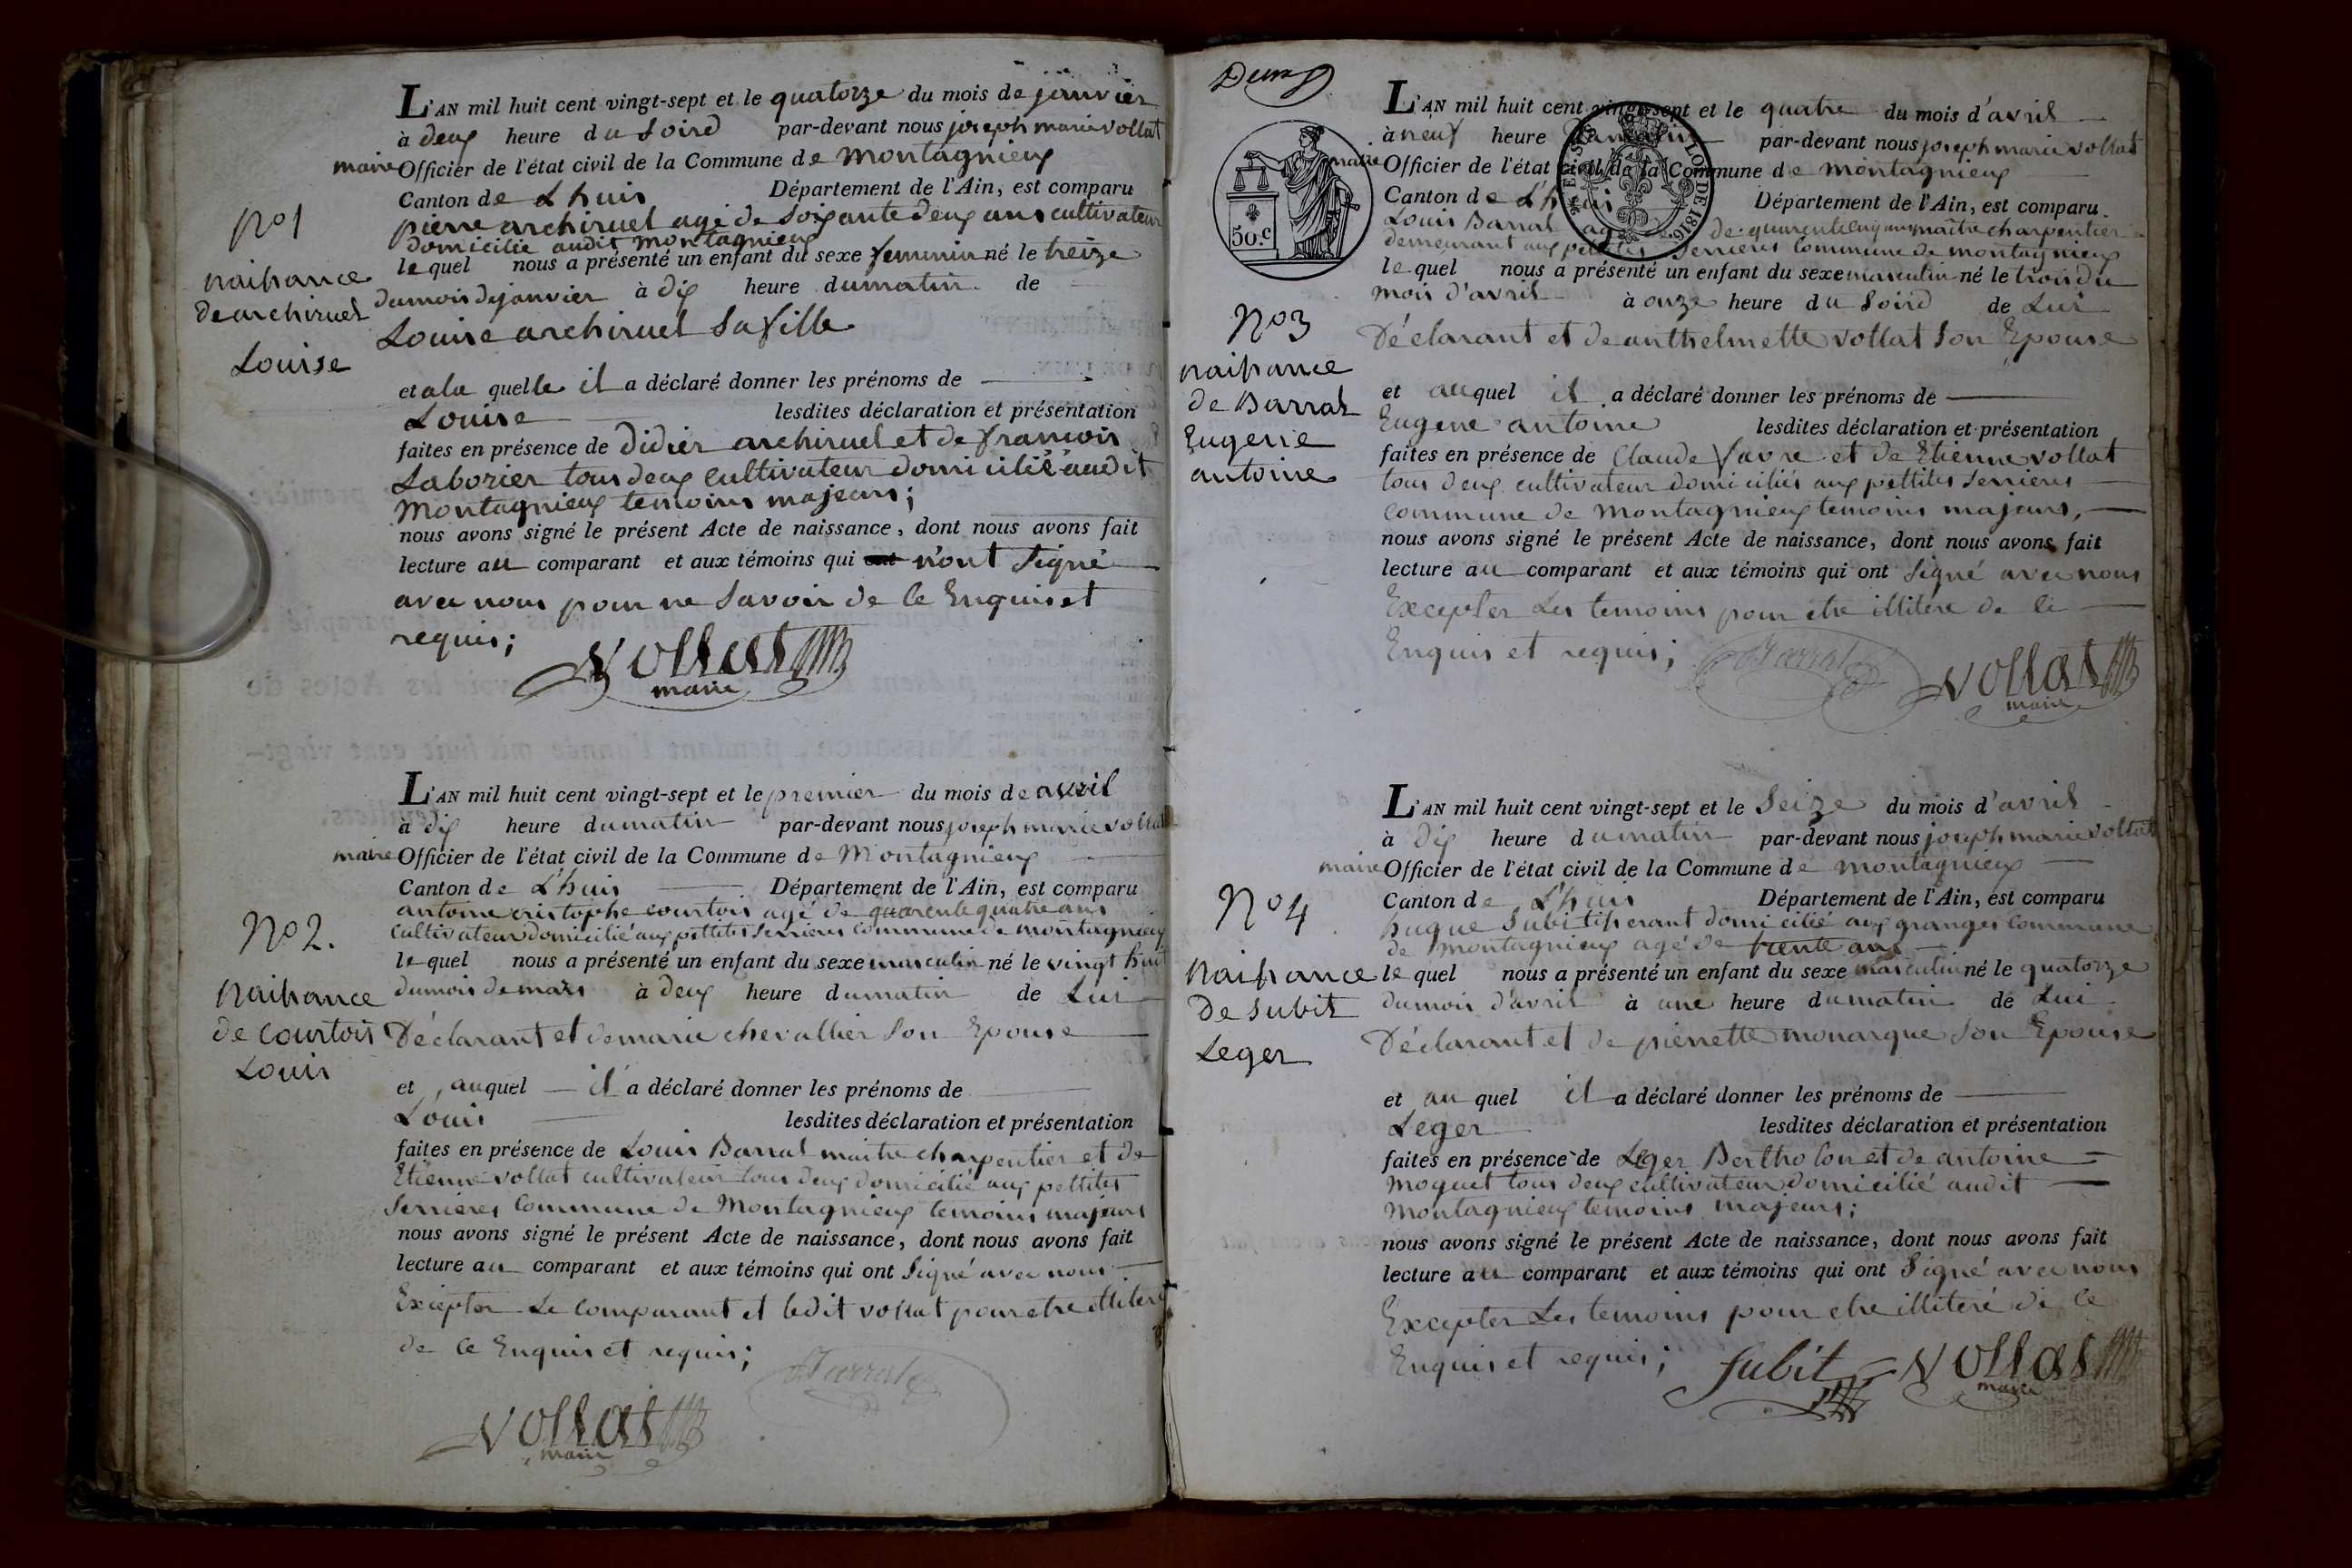 L'AN mil huit cent vingt-sept et le quatorze du mois de janvier
à deux heure du soird par-devant nous joseph marie vollat
maire Officier de l'état civil de la Commune de montagnieux
Canton de L'huis Département de l'Ain, est comparu
pierre archiruel agé de soixante deux ans cultivateur
domicilié audit montagnieux
lequel nous a présenté un enfant du sexe feminin né le treize
du mois de janvier à dix heure du matin de
Louise archiruel sa fille
et a la quelle il a déclaré donner les prénoms de
Louise lesdites déclaration et présentation
faites en présence de didier archiruel et de francois
Laborier tous deux cultivateur domicilié audit
Montagnieux temoins majeurs;
nous avons signé le présent Acte de naissance, dont nous avons fait
lecture au comparant et aux témoins qui n'ont signé
avec nous pour ne savoir de ce Enquis et
requis;
Vollat
maire
N° 1
naissance
de archiruel
Louise
L'AN mil huit cent vingt-sept et le premier du mois de avril
à dix heure du matin par-devant nous joseph marie vollat
maire Officier de l'état civil de la Commune de Montagnieux
Canton de L'huis Département de l'Ain, est comparu
antoine cristophe courtois agé de quarente quatre ans
cultivateur domicilié aux pettites serrieres commune de montagnieux
lequel nous a présenté un enfant du sexe masculin né le vingt huit
du mois de mars à deux heure du matin de Lui
Déclarant et de marie chevallier son Epouse
et auquel il a déclaré donner les prénoms de
Louis lesdites déclaration et présentation
faites en présence de Louis Barral maitre charpentier et de
Etienne vollat cultivateur tous deux domicilié aux pettites
serrieres Commune de Montagnieux temoins majeurs
nous avons signé le présent Acte de naissance, dont nous avons fait
lecture au comparant et aux témoins qui ont signé avec nous
Excepter Le comparant et ledit vollat pour etre illitere
de ce Enquis et requis;
Barral
Vollat
maire
N° 2.
Naissance
de courtois
Louis
50.c
L'AN mil huit cent vingt-sept et le quatre du mois d'avril
à neuf heure du matin par-devant nous joseph marie vollat
maire Officier de l'état civil de la Commune de montagnieux
Canton de L'huis Département de l'Ain, est comparu
Louis Barral agé de quarente cinq ans maître charpentier
demeurant aux pettites serrieres commune de montagnieux
lequel nous a présenté un enfant du sexe masculin né le trois du
mois d'avril à onze heure du soird de Lui
Déclarant et de anthelmette vollat son Epouse
et auquel il a déclaré donner les prénoms de
Eugene antoine lesdites déclaration et présentation
faites en présence de Claude favre et de Etienne vollat
tous deux cultivateur domiciliés aux pettites serrieres
commune de montagnieux temoins majeurs,
nous avons signé le présent Acte de naissance, dont nous avons fait
lecture au comparant et aux témoins qui ont signé avec nous
Excepter Les temoins pour etre illitere de ce
Enquis et requis;
Barral
Vollat
maire
N° 3
naissance
de Barral
Eugene
antoine
L'AN mil huit cent vingt-sept et le seize du mois d'avril
à dix heure du matin par-devant nous joseph marie vollat
maire Officier de l'état civil de la Commune de montagnieux
Canton de L'huis Département de l'Ain, est comparu
hugue subit tisserant domicilié aux granges commune
de montagnieux agé de trente ans
lequel nous a présenté un enfant du sexe masculin né le quatorze
du mois d'avril à une heure du matin de Lui
Déclarant et de pierrette monarque son Epouse
et au quel il a déclaré donner les prénoms de
Leger lesdites déclaration et présentation
faites en présence de Leger Bertholon et de antoine
moquet tous deux cultivateur domicilié audit
Montagnieux temoins majeurs;
nous avons signé le présent Acte de naissance, dont nous avons fait
lecture au comparant et aux témoins qui ont signé avec nous
Excepter Les temoins pour etre illiteré de ce
Enquis et requis;
Subit
Vollat
maire
N° 4
Naissance
de subit
Leger